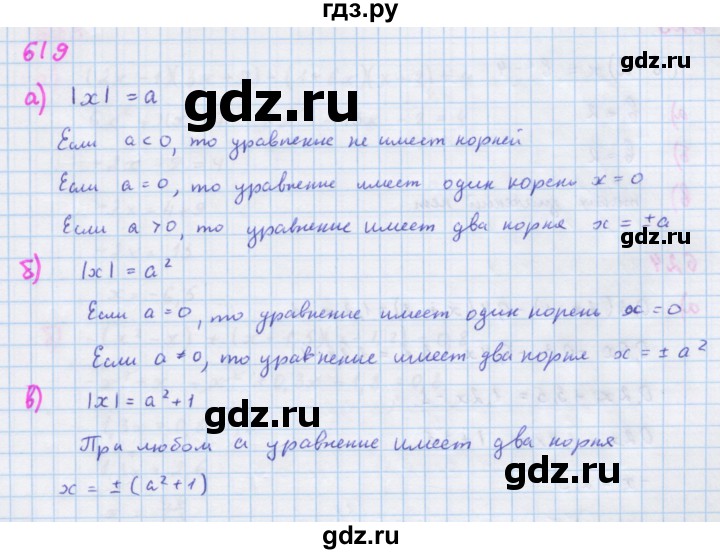 гдз.ру
619
а) |x| = a
gdz.ru
Если a < 0, то уравнение не имеет корней
Если a = 0, то уравнение имеет один корень x = 0
Если a > 0, то уравнение имеет два корня x = ±a
б) |x| = a²
Если a = 0, то уравнение имеет один корень x = 0
Если a ≠ 0, то уравнение имеет два корня x = ± a²
в) |x| = a²+1
При любом a уравнение имеет два корня
gdz.ru
x = ± (a²+1)
gdz.ru
гдз.ру